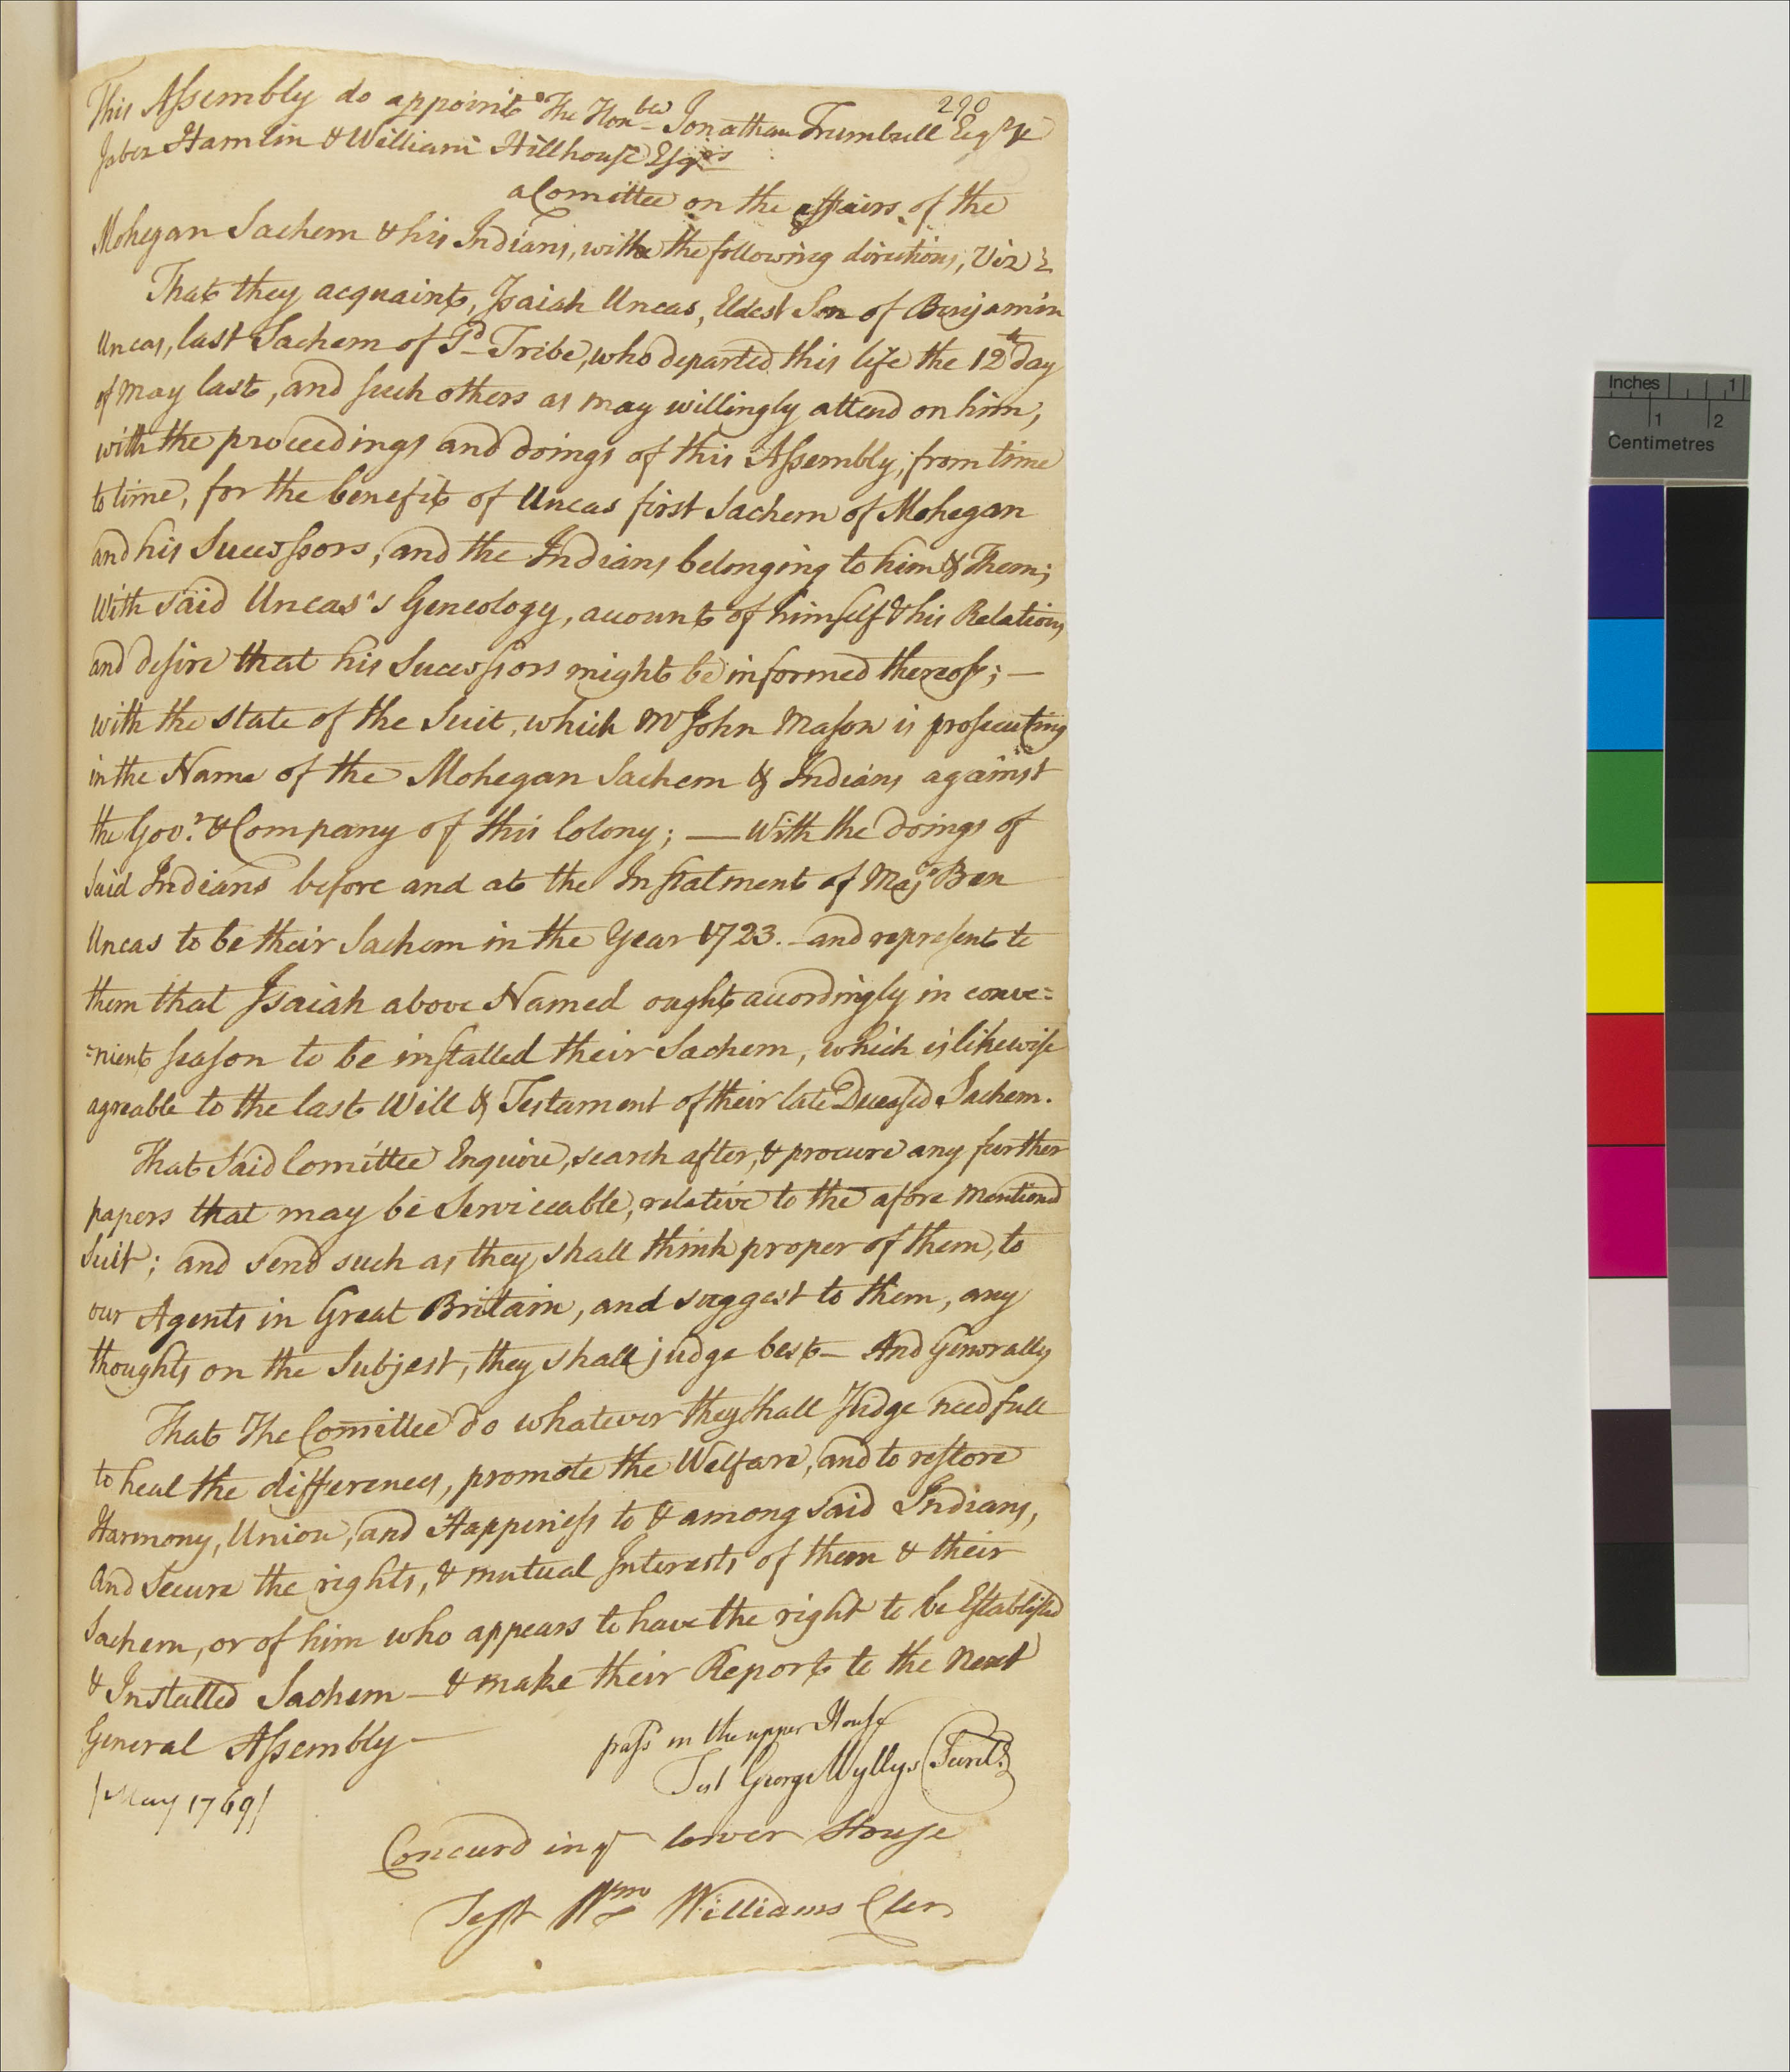 290
This Assembly do appoint The Honble Jonathan Trumbull Esqr
Jabez Hamlin & William Hillhouse Esqrs
a Comittee on the affairs of the
Mohegan Sachem & his Indians, with the following directions, Viz
That they acquaint, Isaiah Uncas, Eldest Son of Benjamin
Uncas, last Sachem of Sd Tribe, who departed this life the 12th day
of May last, and such others as may willingly attend on him,
with the proceedings and doings of this Assembly, from time
to time, for the benefit of Uncas first Sachem of Mohegan
and his Sucessors, and the Indians belonging to him & Them;
With said Uncas's Geneology, account of himself & his Relations
and desire that his Sucessors might be informed thereof; —
with the state of the Suit, which Mr John Mason is prosecuting
in the Name of the Mohegan Sachem & Indians against
the Govr. & Company of this Colony; — With the doings of
Said Indians before and at the Instalment of Majr Ben
Uncas to be their Sachem in the Year 1723. — and represent to
them that Isaiah above Named ought accordingly in conve=
=nient season to be installed their Sachem, which is likewise
agreable to the last Will & Testament of their late Deceased Sachem.
That Said Comittee Enquire, search after, & procure any further
papers that may be Serviceable, relative to the afore Mentiond
Suit; and send such as they shall think proper of them, to
our Agents in Great Britain, and suggest to them, any
thoughts on the Subject, they shall judge best — And Generally
That The Comittee do whatever they shall Judge needfull
to heal the differences, promote the Welfare, and to restore
Harmony, Union, and Happiness to & among said Indians,
And Secure the rights, & mutual Interests of them & their
Sachem, or of him who appears to have the right to be Established
& Installed Sachem — & make their Report to the Next
General Assembly —
pass'd in the upper House
Test George Wyllys Secret.
/May 1769/
Concurd in ye lower House
Test Wm Williams Cler
Inches 1
1 2
Centimetres